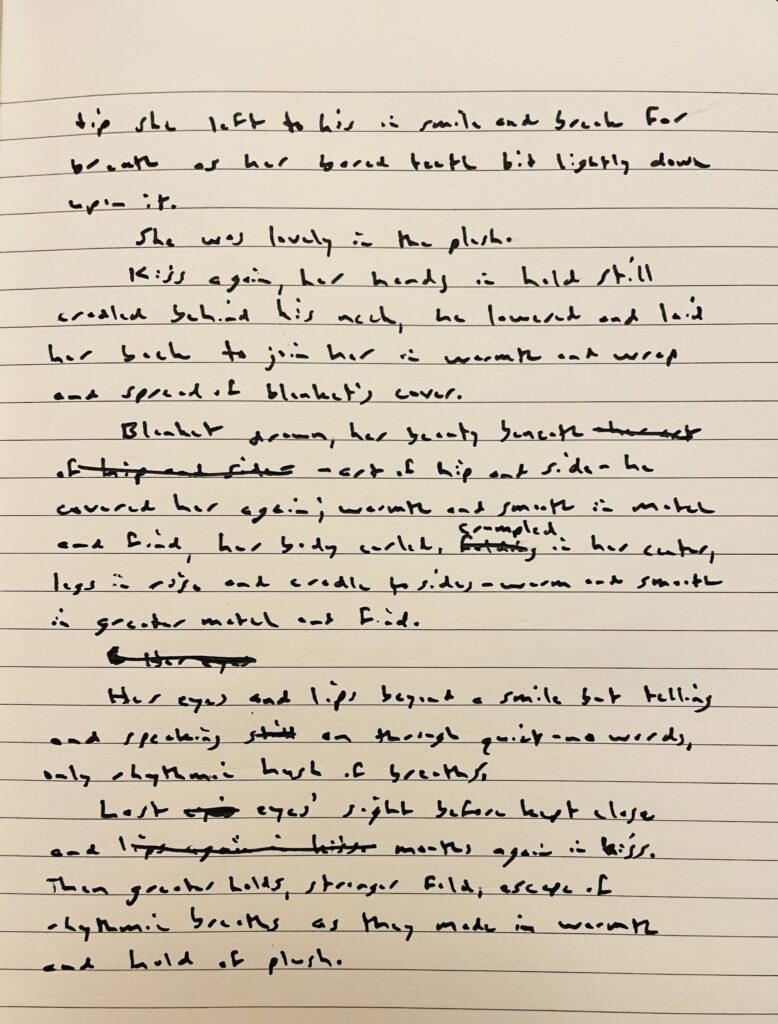 tip she left to his in smile and break for
breath as her bared teeth bit lightly down
upon it.
She was lovely in the plush.
Kiss again, her hands in hold still
cradled behind his neck, he lowered and laid
her back to join her in warmth and wrap
and spread of blanket's cover.
Blanket drawn, her beauty beneath her art
of hip and side -art of hip and side- he
covered her again; warmth and smooth in match
and find, her body curled, folding crumpled in her center,
legs in rise and cradle to sides-warm and smooth
in greater match and find.
Her eyes
Her eyes and lips beyond a smile but telling
and speaking still on through quiet-no words,
only rhythmic hush of breaths.
Lost eyes' sight before kept close
and lips again in kiss mouths again in kiss.
Then greater holds, stronger fold, escape of
rhythmic breaths as they made in warmth
and hold of plush.